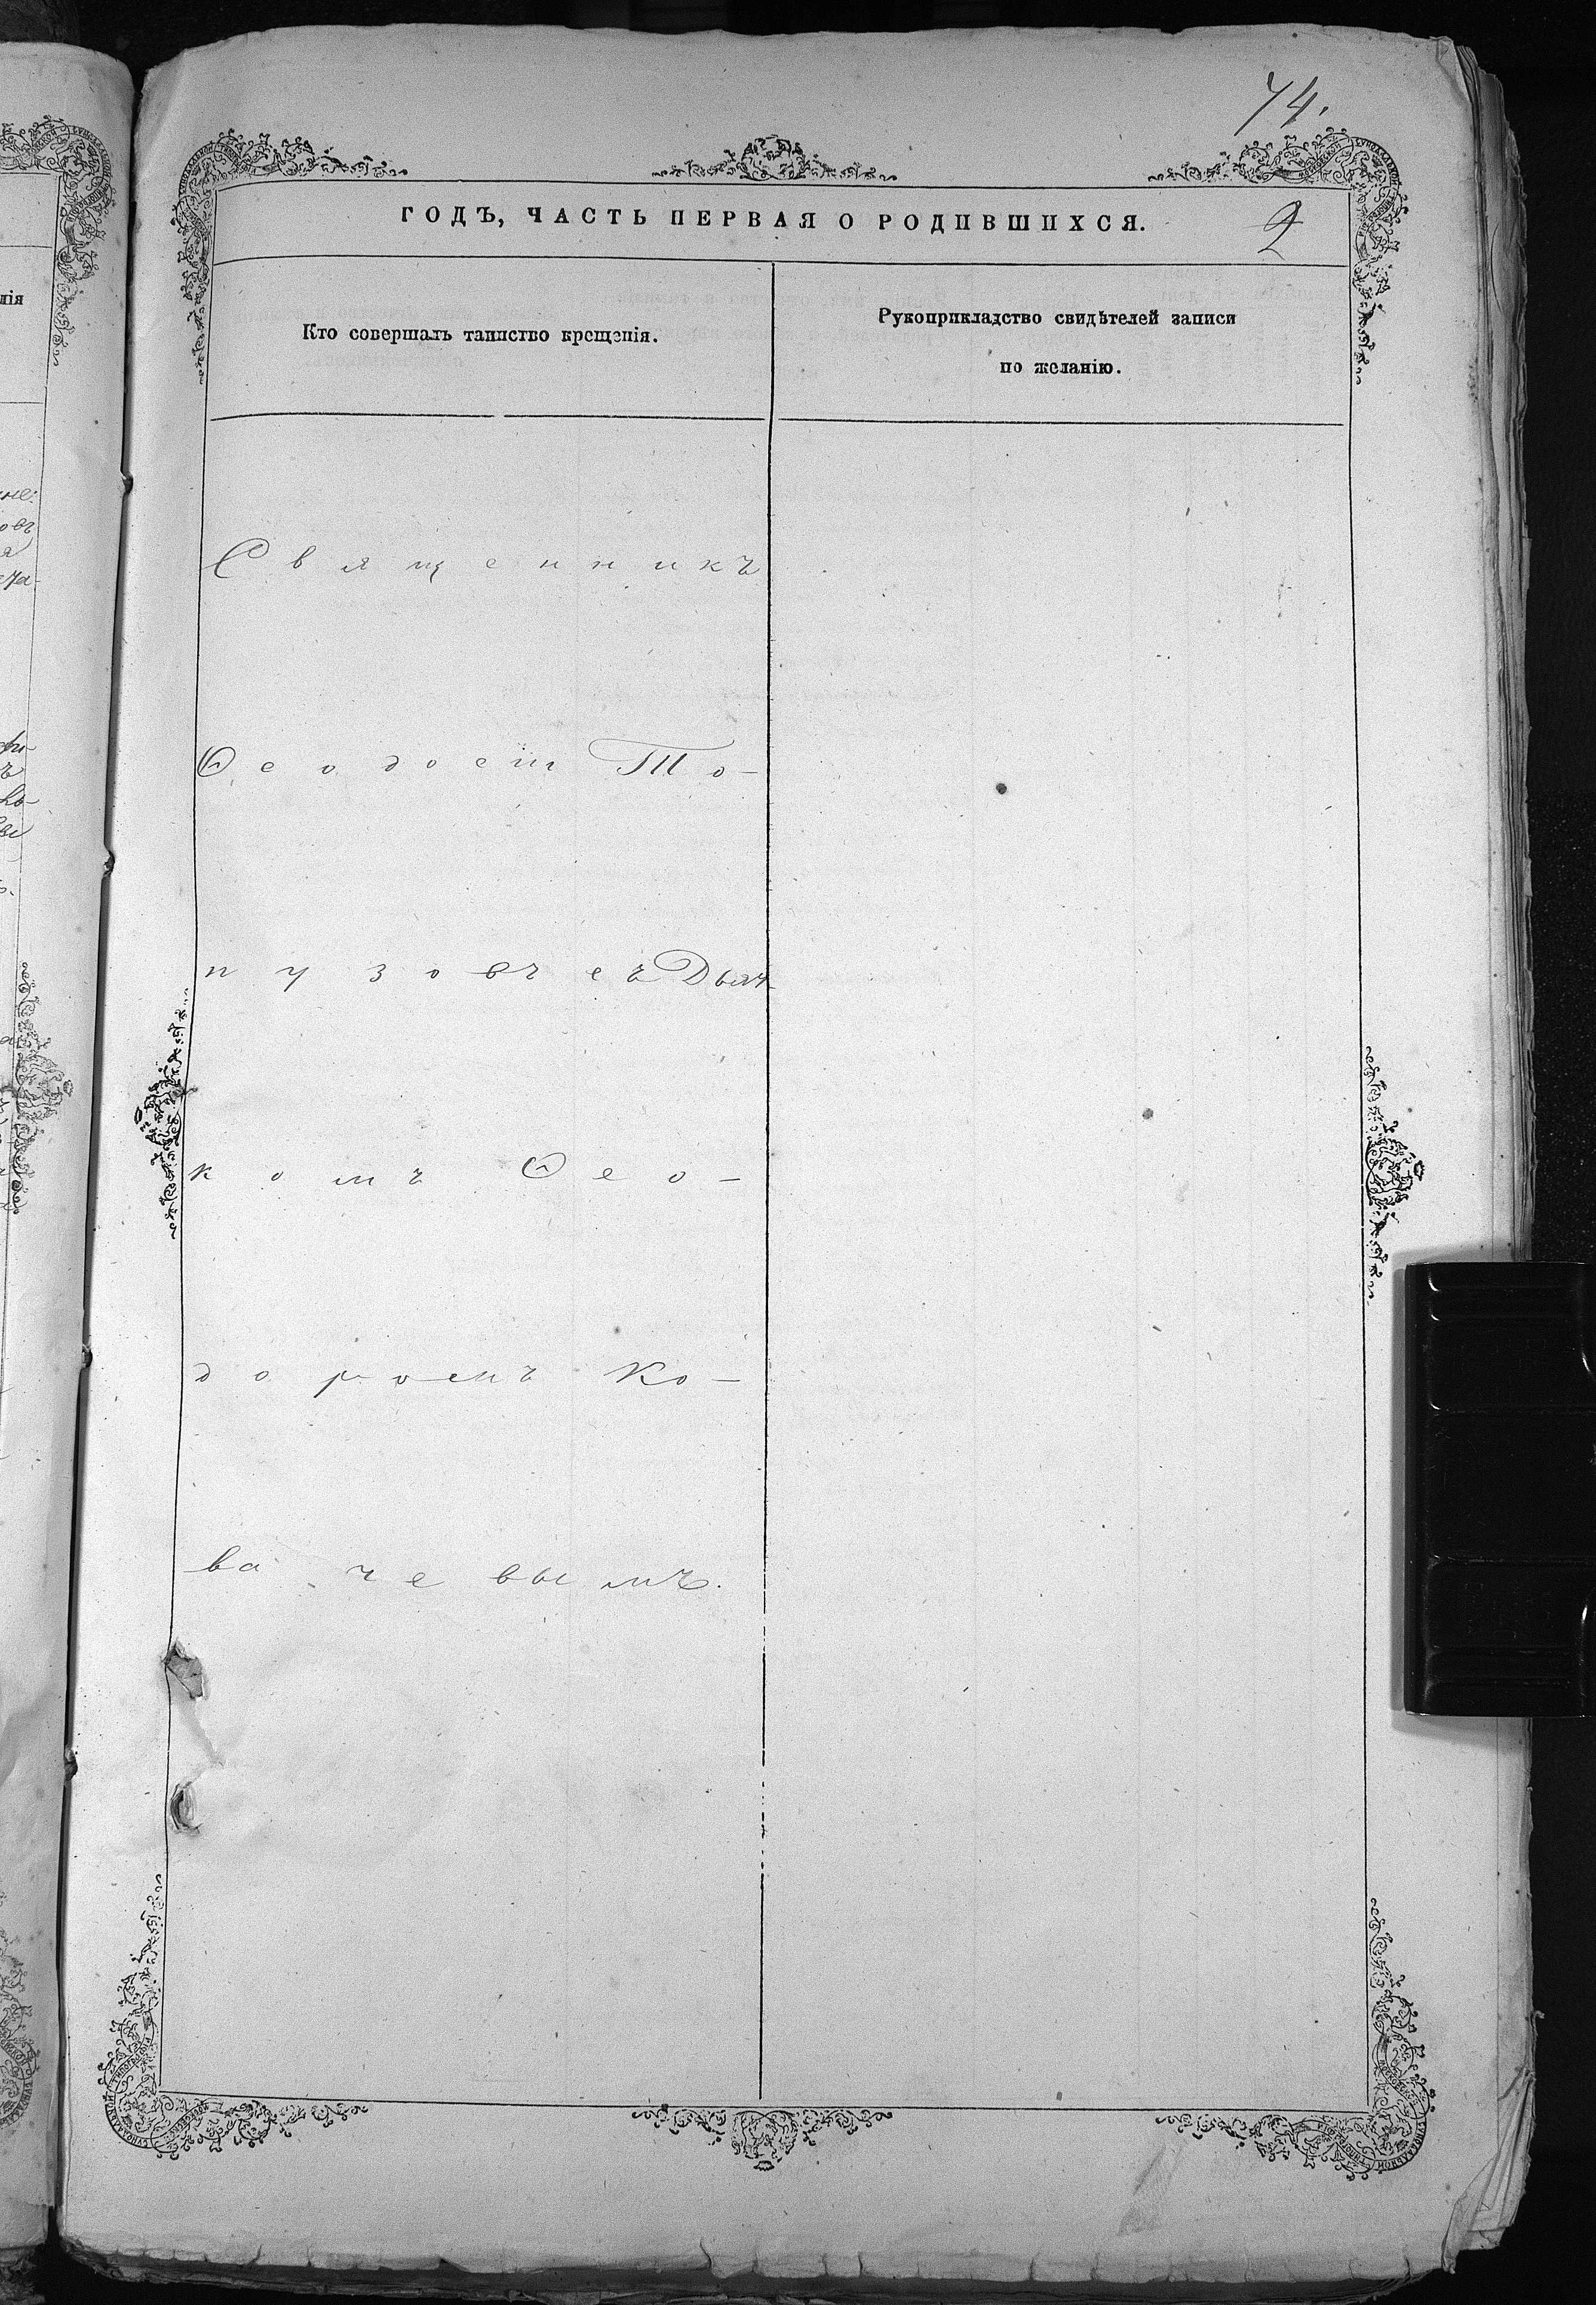 74.
ГОДЪ, ЧАСТЬ ПЕРВАЯ О РОДИВШИХСЯ.
2
Кто совершалъ таинство крещенія.
Рукоприкладство свидѣтелей записи
по желанію.
Священникъ
Ѳеодосій То-
пузовъ съ Дьяч-
комъ Ѳео-
доромъ Ко-
вачевымъ.